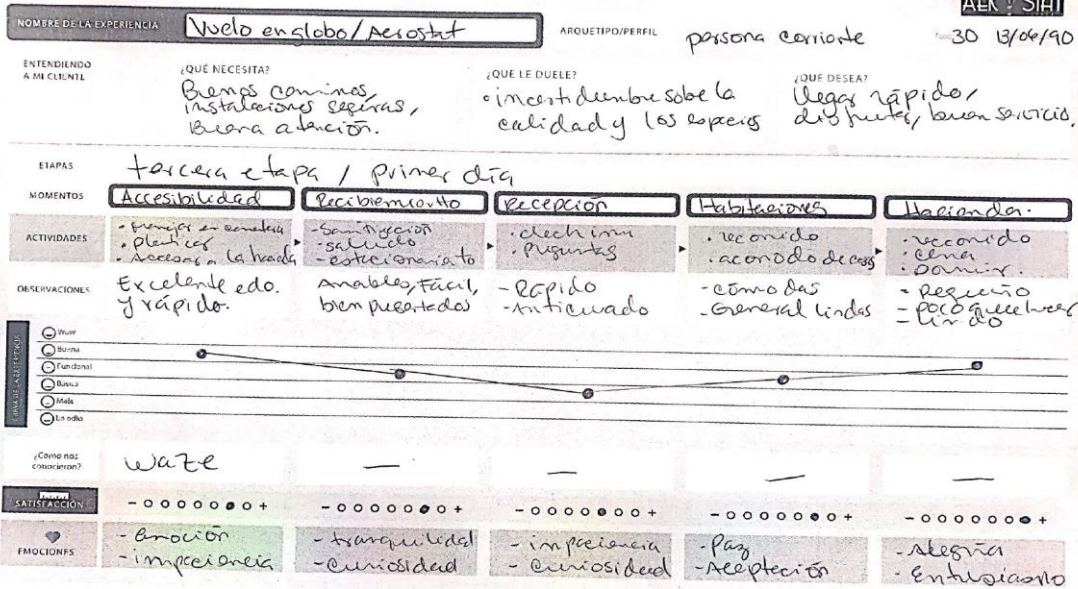 NOMBRE DE LA EXPERIENCIA Vuelo en globo/Aerostat ARQUETIPO/PERFIL persona corriente 30 13/06/90
ENTENDIENDO A MI CLIENTE
¿QUÉ NECESITA?
Buenos caminos,
instalaciones seguras,
Buena atención.
¿QUÉ LE DUELE?
• incertidumbre sobre la
calidad y los espacios
¿QUÉ DESEA?
llegar rápido,
disfrutar, buen servicio.
ETAPAS tercera etapa / primer día
MOMENTOS Accesibilidad Recibimiento Recepción Habitaciones Hacienda.
ACTIVIDADES
• manejar en carretera
• platicar
• Accesar a la hacienda
- Sanitización
- saludo
- estacionamiento
• check inn
• preguntas
• recorrido
• acomodo de cosas
• recorrido
• cena
• Dormir.
OBSERVACIONES
Excelente edo.
y rápido.
Amables, Fácil,
bien presentados
- Rápido
- Anticuado
- cómodas
- General lindas
- Pequeño
- poco que hacer
- lindo
Wow
Buena
Funcional
Básica
Mala
Lo odio
¿Como nos conocieron? Waze — — — —
SATISFACCIÓN - + - + - + - + - +
EMOCIONES
- Emoción
- impaciencia
- tranquilidad
- Curiosidad
- impaciencia
- Curiosidad
- Paz
- Aceptación
- Alegría
- Entusiasmo